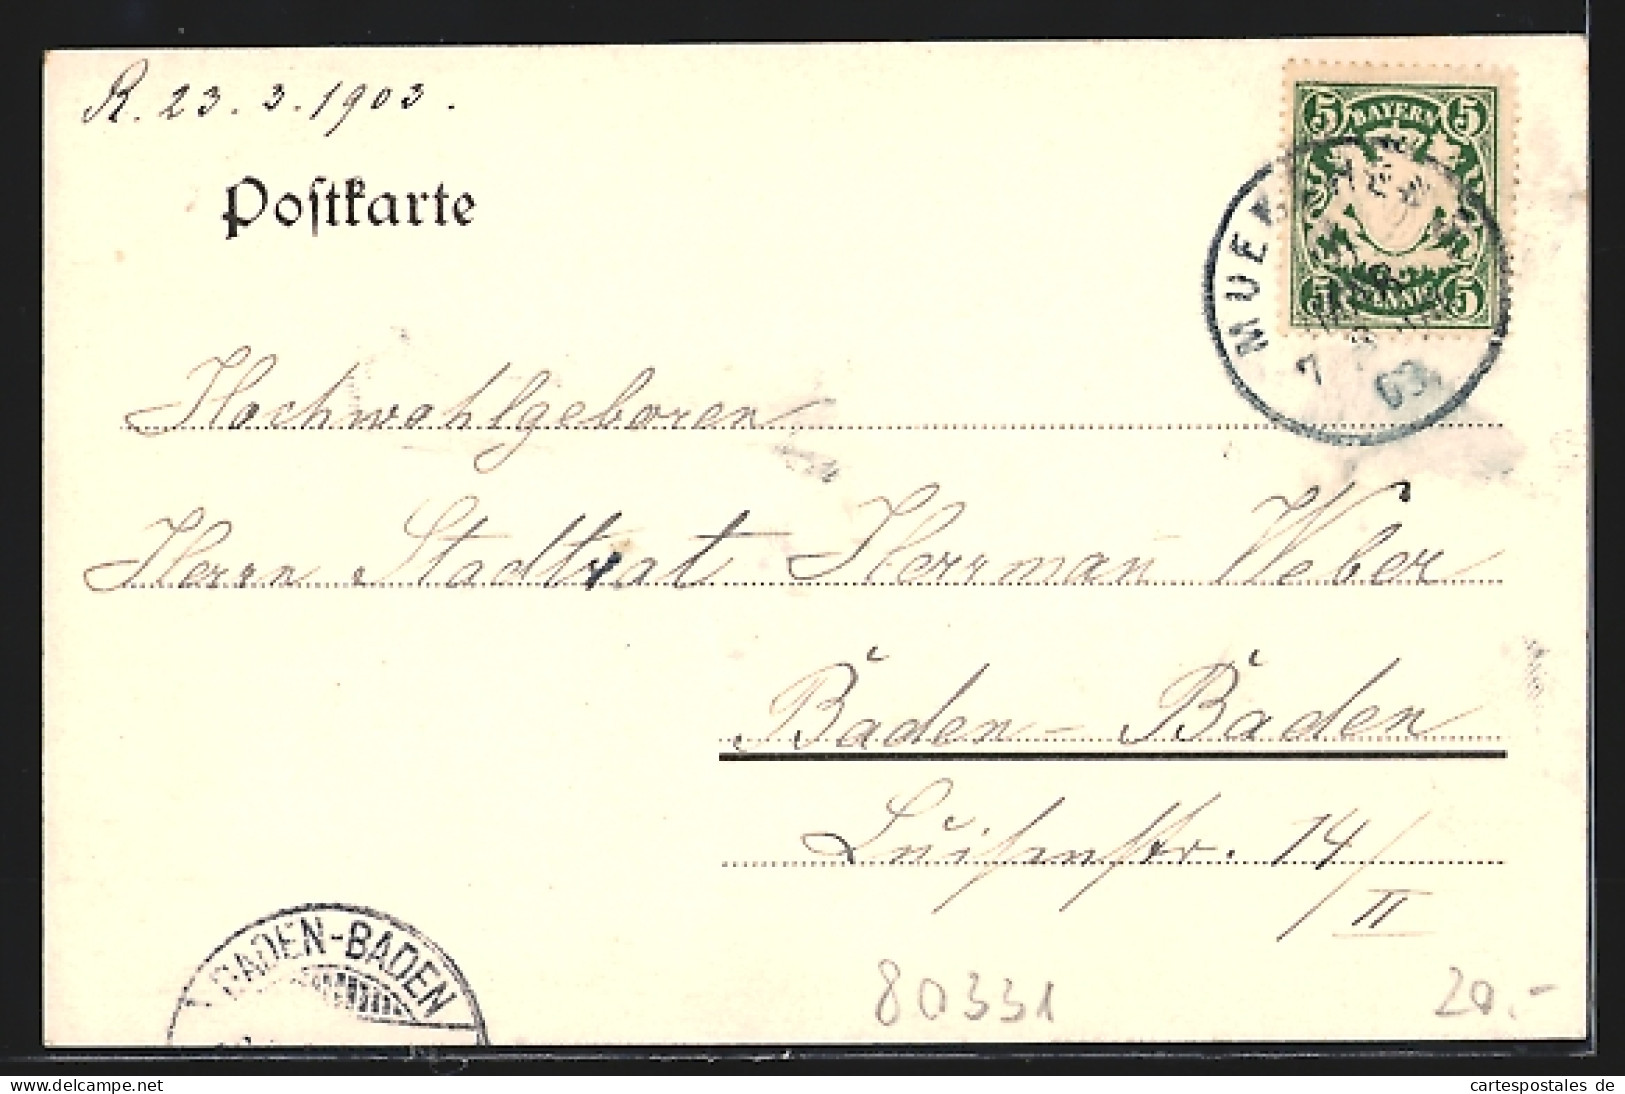 R. 23. 3. 1903.
Poſtkarte
5 BAYERN 5
5 5
MUENCHEN
7
03
Hochwohlgeboren
Herrn Stadtrat Herrman Weber
Baden-Baden
Luisenstr. 14/II
BADEN-BADEN
80331
20.-
www.delcampe.net
cartespostales de